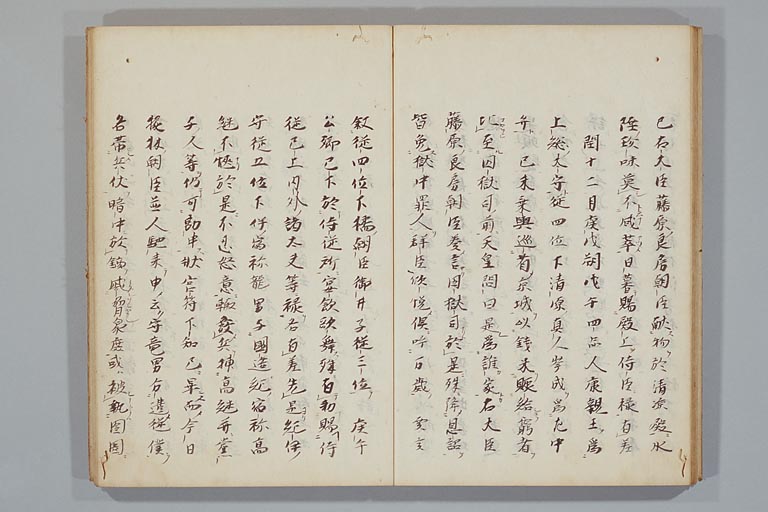 巳右大臣藤原良房朝臣献物於清涼殿水
陸珍味莫不咸萃日暮賜殿上侍臣禄有差
閏十二月庚戌朔戊午四品人康親王為
上総太守従四位下清原真人岑成為左中
弁己未乗輿巡省京城以銭米賑給窮者
比至囚獄司前天皇問曰是為誰家右大臣
藤原良房朝臣奏言囚獄司於是殊降恩詔
皆免獄中罪人群臣欣悦倶呼万歳 癸亥
叙従四位下橘朝臣御井子従三位 庚午
公卿已下於侍従所宴飲歌舞殊有勅賜侍
従已上内外諸大夫等禄各有差先是紀伊
守従五位下伴宿祢龍男与国造紀宿祢高
継不愜於是不忍怒意輙發兵捕高継并党
与人等仍可勘申状官符下知已畢而今日
従林朝臣並人馳来申云守竜男分遣従僕
各帯兵仗暗中於 威脅衆庶或被執囹圄